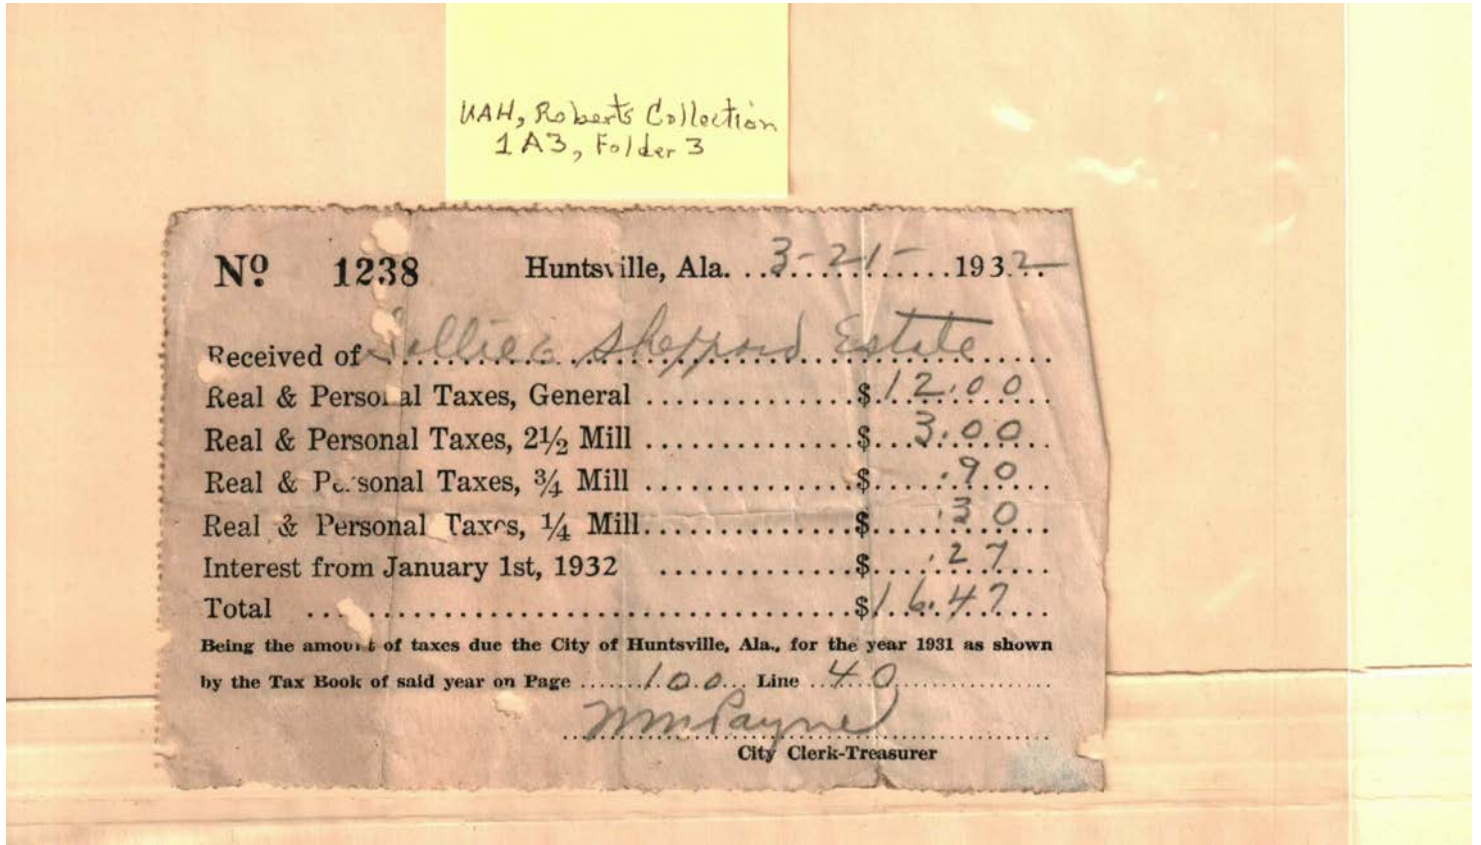 UAH, Roberts Collection
1A3, Folder 3
Nº 1238 Huntsville, Ala. ...3-21-.......1932
Received of Sallie Sheppard Estate
Real & Personal Taxes, General ..............$12.00
Real & Personal Taxes, 2½ Mill ..............$3.00
Real & Personal Taxes, ¾ Mill ..............$.90
Real & Personal Taxes, ¼ Mill..............$.30
Interest from January 1st, 1932 .............$.27
Total ...................................$16.47
Being the amount of taxes due the City of Huntsville, Ala., for the year 1931 as shown
by the Tax Book of said year on Page .......100... Line ..40..............
Wm Payne
City Clerk-Treasurer